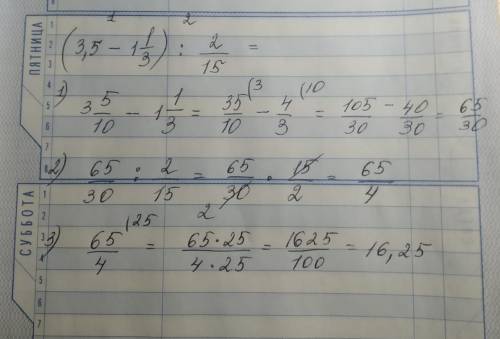 ПЯТНИЦА
1 2
(3,5 - 1 1/3) : 2/15 =
1) 3 5/10 - 1 1/3 = 35/10 (3 - 4/3 (10 = 105/30 - 40/30 = 65/30
2) 65/30 : 2/15 = 65/30 · 15/2 = 65/4
2
СУББОТА
3) 65/4 (25 = 65·25/4·25 = 1625/100 = 16,25